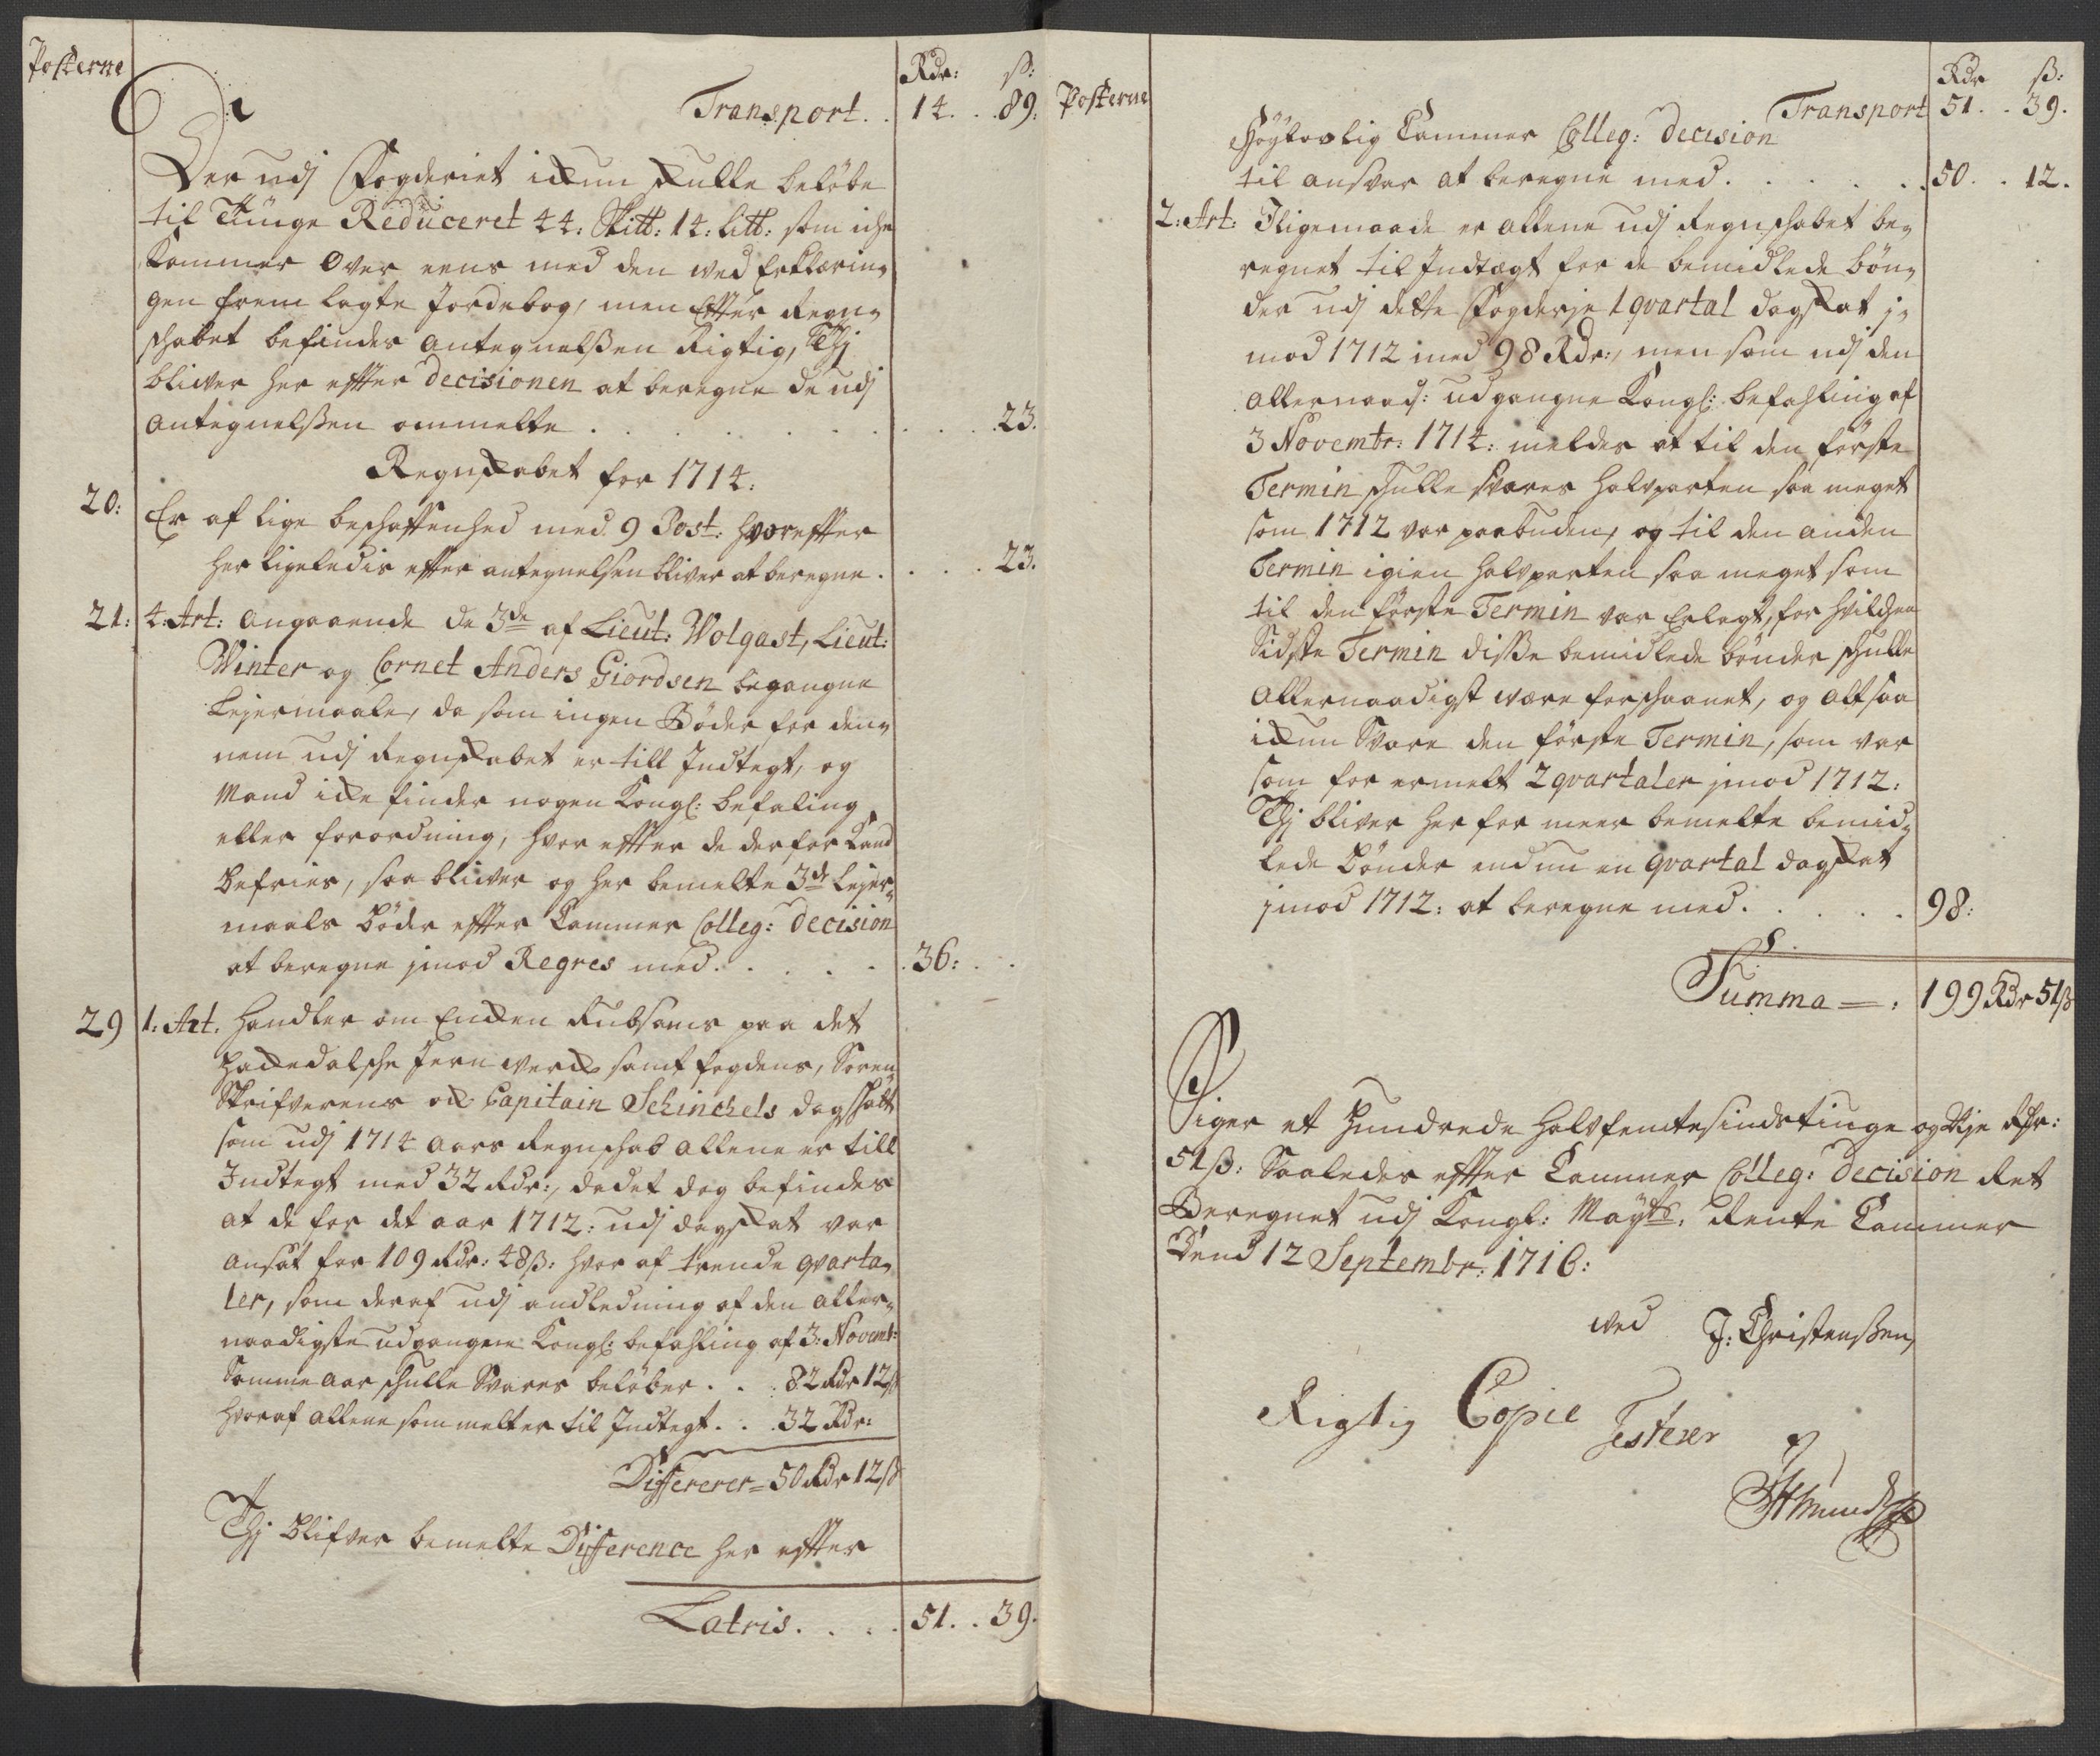 Posterne
Rdr: ß:
Transport . . 14. . .89.
Der udj Fogderiet ickun skulle beløbe
til Tiinge Reduceret 44: Skitt: 14: litt: som iche
kommer over eens med den ved Erklærin¬
gen frem lagte Jordebog, men Efter Regn¬
schabet befindes antegnelßen Rigtig, Thj
bliver her effter Decisionen at beregne de udj
antegnelßen ommelte . . . . . . . . . . 23.
Regnskabet for 1714:
20: Er af lige beschaffenhed med 9 Post: hvoreffter
her ligeledis effter antegnelsen bliver at beregne . . . . 23.
21: 4: Art: angaaende de 3de af Lieut: Wolgast, Lieut:
Winter og Cornet Anders Giordsen begangne
Lejermaale, da som ingen Bøder for den¬
nem udj Regnskabet er till Indtegt, og
Mand icke finder nogen Kongl: befaling
eller forordning, hvor effter de derfor kand
befries, saa bliver og her bemelte 3de Lejer¬
maals bøder effter Cammer Colleg: Decision
at beregne jmod Regres med . . . . . 36: . .
29 1: Art. handler om Encken Rubsams paa det
Hackedalsche Jern werck samt fogdens, Soren¬
Skrifverens och Capitain Schinckels dagskatt
som udj 1714 aars Regnschab allene er till
Indtegt med 32 Rdr:, da det dog befindes
at de for det aar 1712: udj dagskat var
ansat for 109 Rdr: 48ß: hvor af trende qvarta¬
ler, som deraf udj andledning af den aller¬
naadigste udgangne Kongl: befahling af 3: Novemb:
Samme aar schulle svares beløber . . . 82 Rdr 12ß
hvoraf allene som melter til Indtegt . . . 32 Rdr:
Differerer = 50 Rdr 12ß
Thj blifver bemelte Difference her effter
Latris . . . . 51. . 39.
Posterne
Rdr ß:
Transport 51. . 39.
Høylovlig Cammer Colleg: Decision
til ansvar at beregne med . . . . . . 50. . 12.
2: Art: Iligemaade er allene udj Regnschabet be¬
regnet til Indtægt for de bemidlede bøn¬
der udj dette Fogderje 1 qvartal dagskat j¬
mod 1712 med 98 Rdr:, men som udj den
allernaad: udgangne Kongl: befahling af
3 Novembr: 1714: meldes at til den første
Termin schulle svares halvparten saa meget
som 1712 var paabuden, og til den anden
Termin igien halvparten saa meget som
til den første Termin var Erlagt, for hvilchen
Sidste Termin disse bemidlede bønder schulle
allernaadigst være forschaanet, og altsaa
ickun svare den første Termin, som var
som for ermelt 2 qvartaler jmod 1712:
Thj bliver her for meer bemelte bemid¬
lede Bønder endnu en qvartal dagskat
jmod 1712: at beregne med . . . . . 98:
Summa = : 199 Rdr 51ß
Siger et Hundrede halvfemtesindstinge og Nje Rdr:
51ß: Saaledes effter Cammer Colleg: Decision Ret
Beregnet udj Kongl: Mayts: Rente Cammer
Dend 12 Septembr: 1716:
ved J: Christenßen,
Rigtig Copie
Testerer